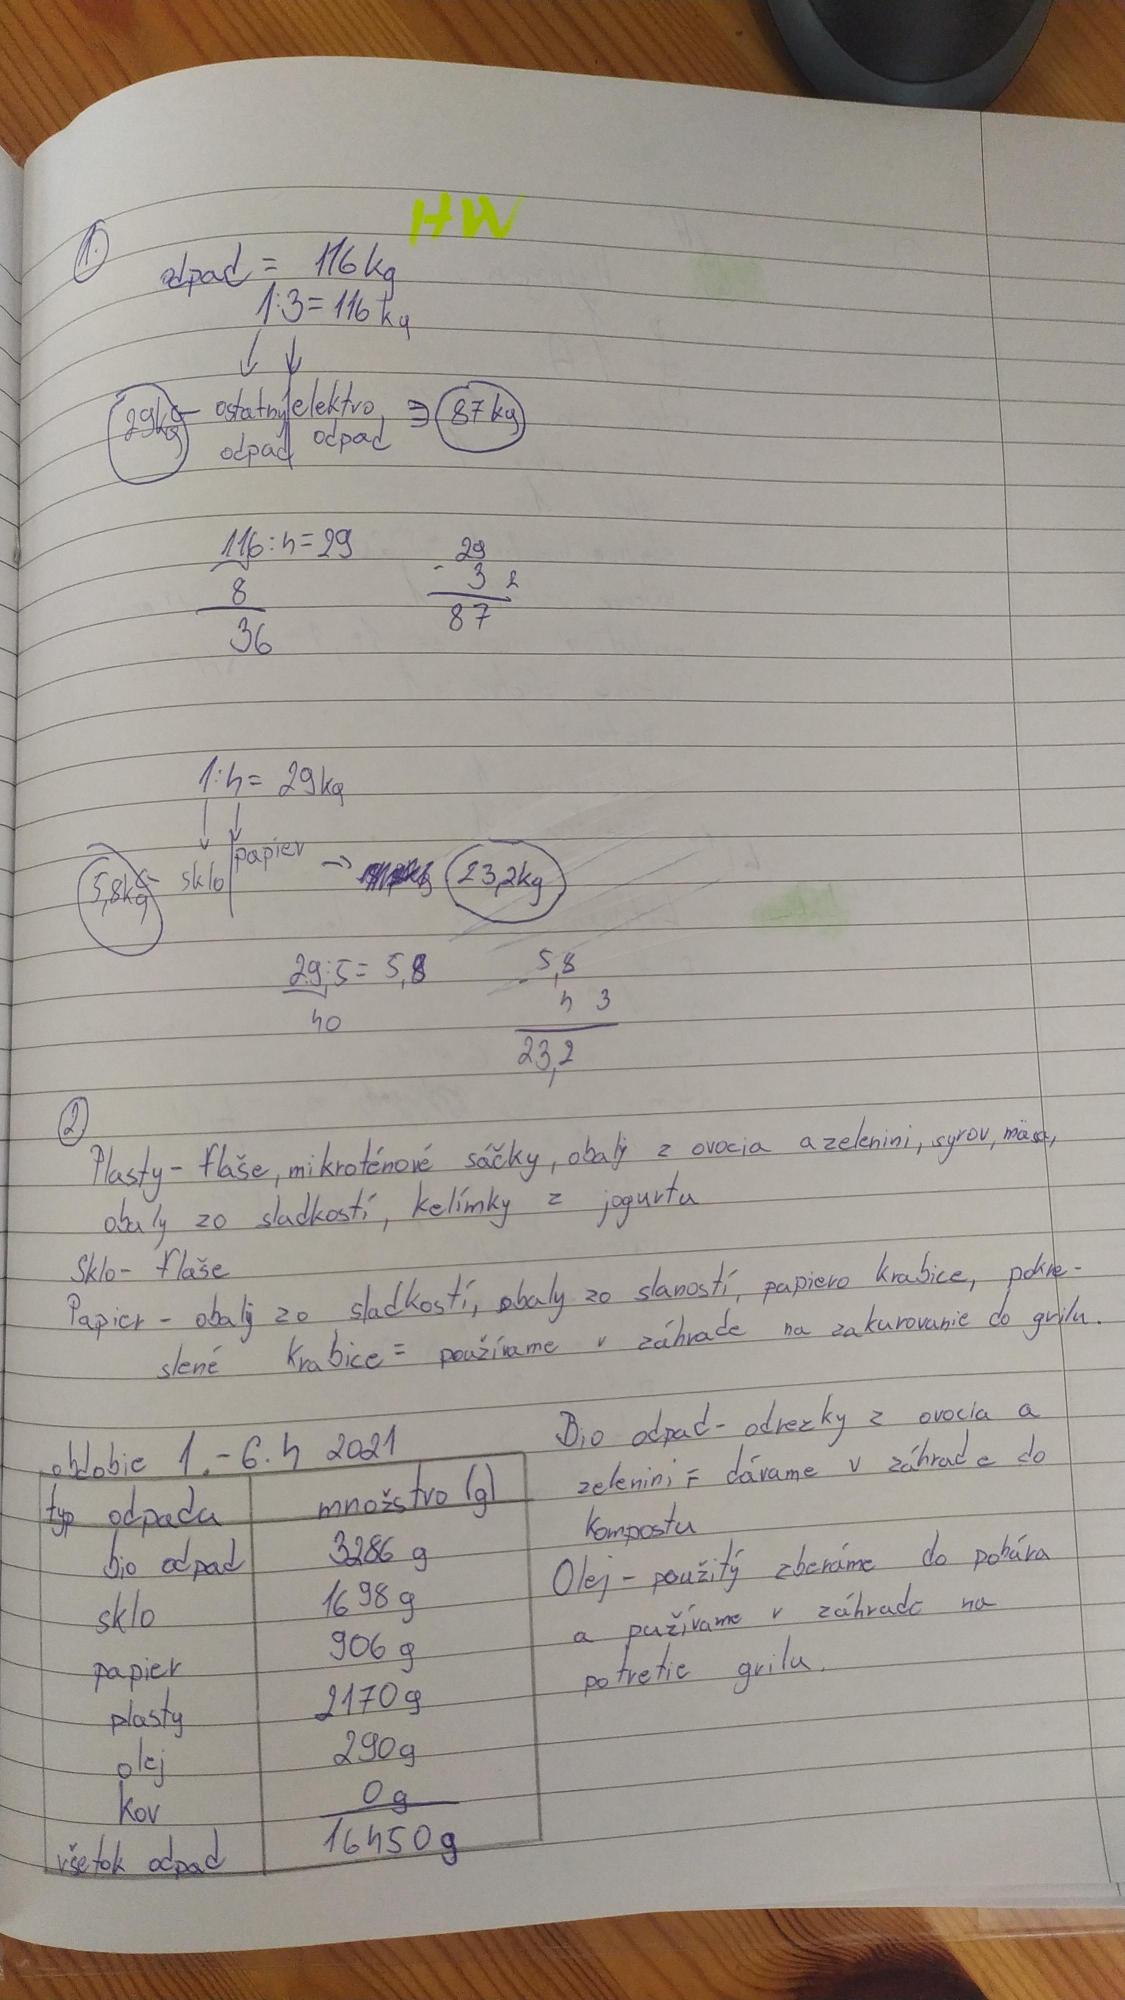 HW
1.
odpad = 116 kg
1:3 = 116 kg
29kg ostatný elektro 87 kg
odpad odpad
116:4=29
8
36
29
· 3 2
87
1:4= 29kg
5,8kg sklo papier → 23,2kg
29:5= 5,8
40
5,8
· 4 3
23,2
2)
Plasty- flaše, mikroténové sáčky, obaly z ovocia a zelenini, syrov, mäsa,
obaly zo sladkostí, kelímky z jogurtu
Sklo- flaše
Papier - obaly zo sladkostí, obaly zo slaností, papiero krabice, pokre-
slené krabice = používame v záhrade na zakurovanie do grilu.
obdobie 1.-6.4 2021
typ odpadu množstvo (g)
bio odpad 3286 g
sklo 1698 g
papier 906 g
plasty 2170 g
olej 290g
kov 0 g
všetok odpad 16450 g
Bio odpad- odrezky z ovocia a
zelenini = dávame v záhrade do
kompostu
Olej - použitý zberáme do pohára
a pužívame v záhrade na
potretie grilu.